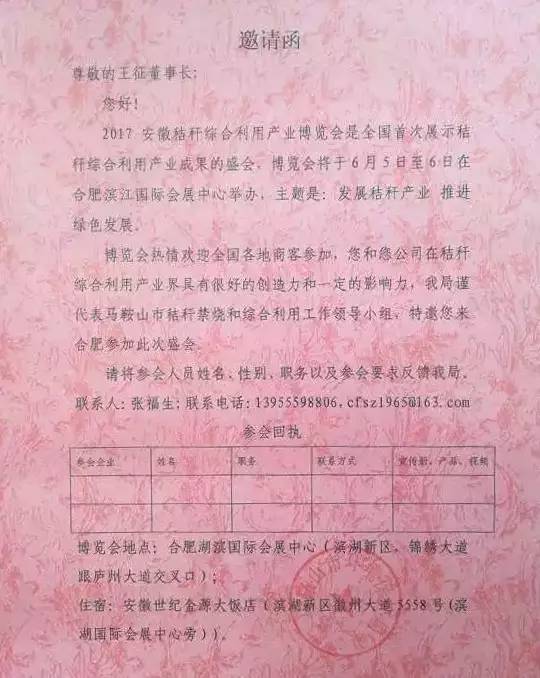 邀请函
尊敬的王征董事长：
您好！
2017 安徽秸秆综合利用产业博览会是全国首次展示秸
秆综合利用产业成果的盛会。博览会将于 6 月 5 日至 6 日在
合肥滨江国际会展中心举办，主题是：发展秸秆产业 推进
绿色发展。
博览会热情欢迎全国各地商客参加，您和您公司在秸秆
综合利用产业界具有很好的创造力和一定的影响力，我局谨
代表马鞍山市秸秆禁烧和综合利用工作领导小组，特邀您来
合肥参加此次盛会。
请将参会人员姓名、性别、职务以及参会要求反馈我局。
联系人：张福生；联系电话：13955598806，cfsz1965@163.com
参会回执
参会企业 姓名 职务 联系方式 宣传册、产品、视频
博览会地点：合肥湖滨国际会展中心（滨湖新区，锦绣大道
跟庐州大道交叉口）；
住宿：安徽世纪金源大饭店（滨湖新区徽州大道 5558 号（滨
湖国际会展中心旁））。